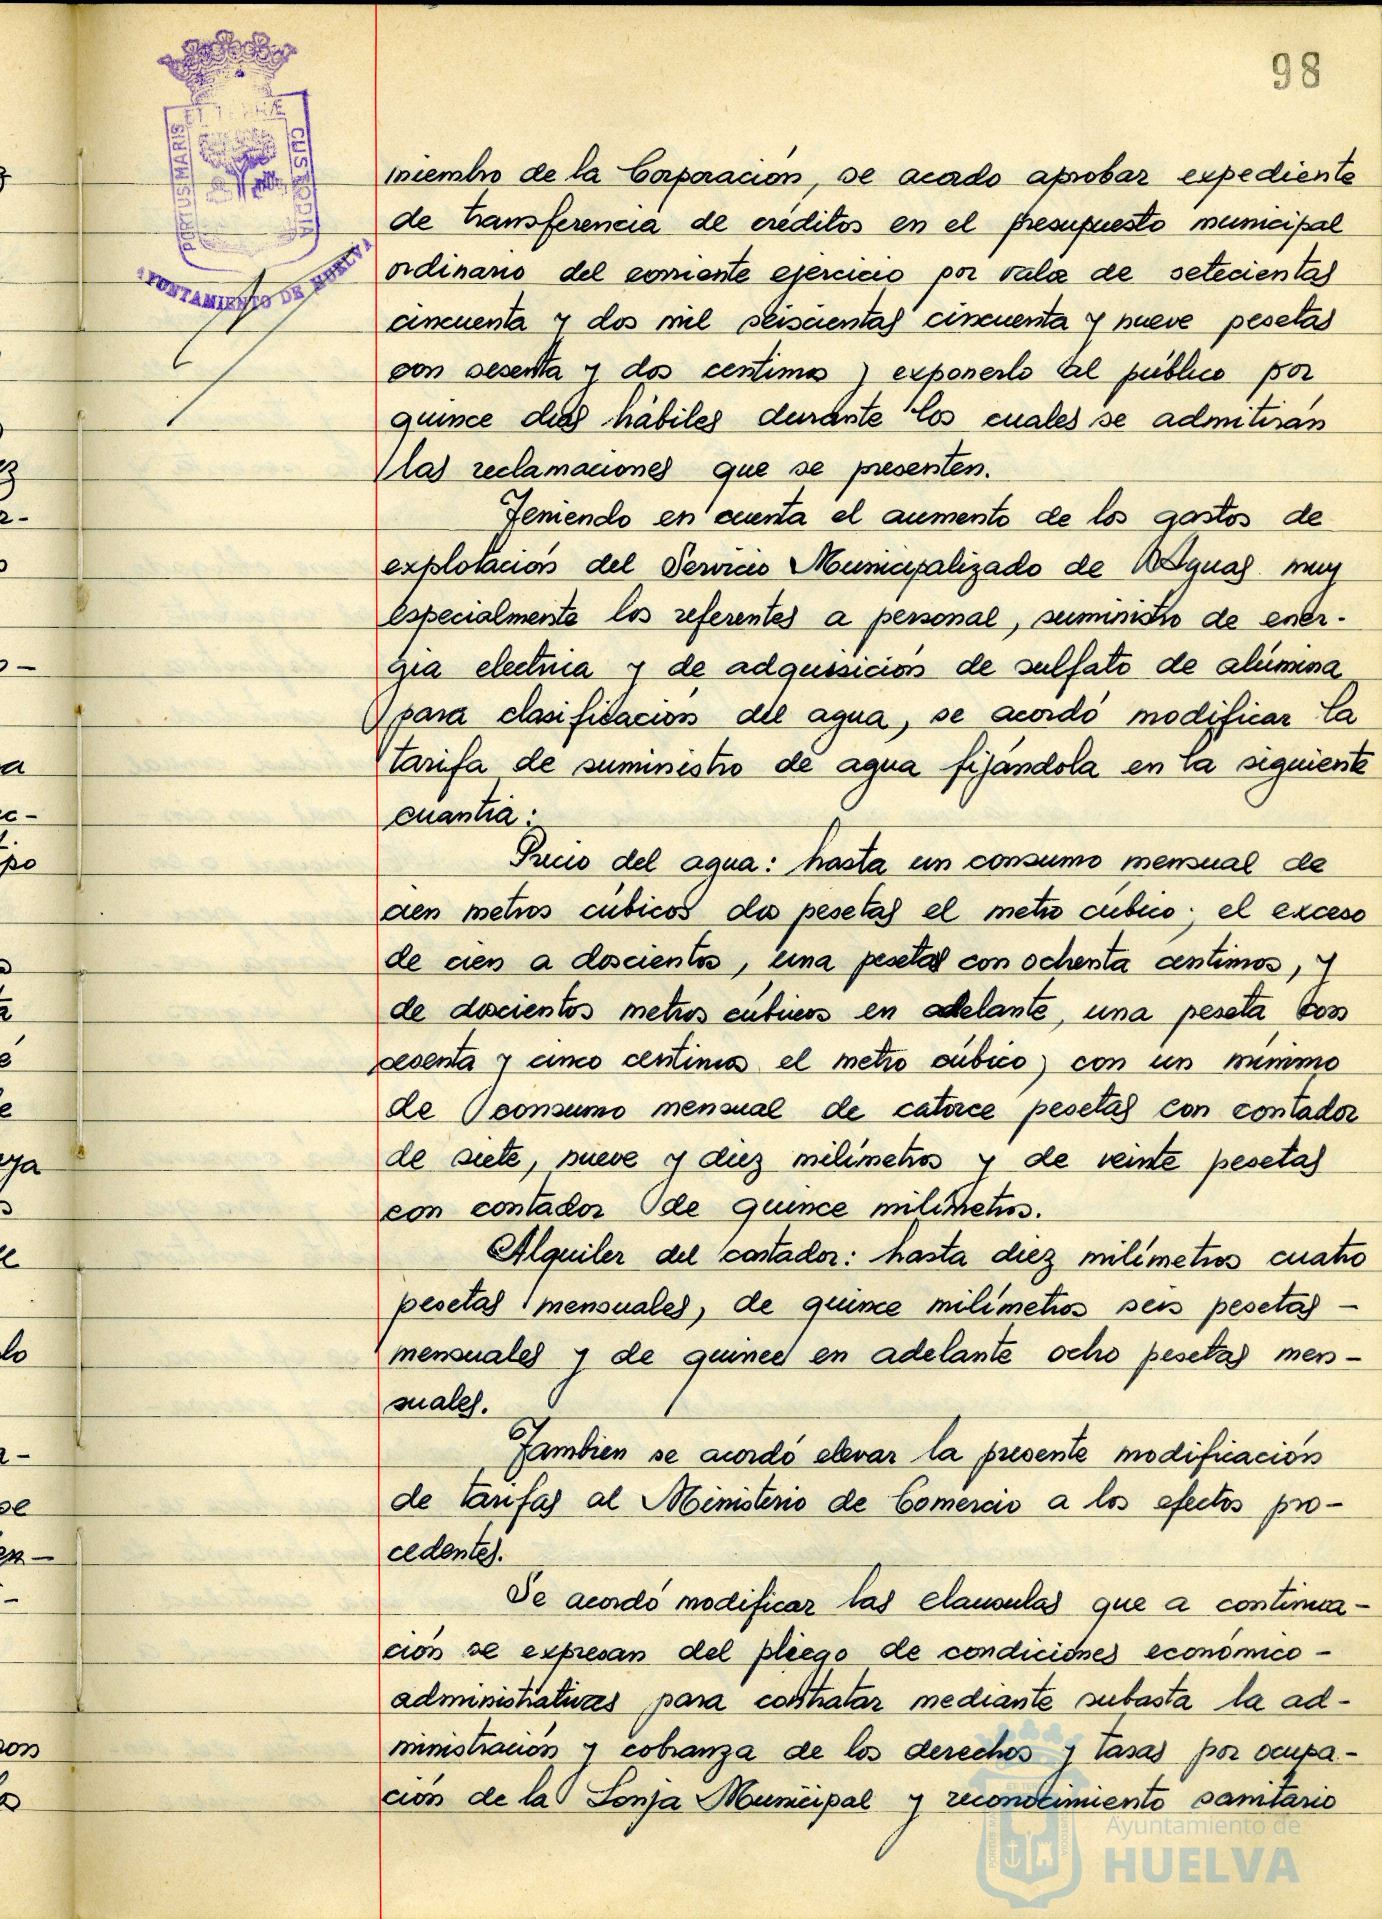 98
PORTUS MARIS ET TERRÆ CUSTODIA
AYUNTAMIENTO DE HUELVA
miembro de la Corporación, se acordo aprobar expediente
de transferencia de créditos en el presupuesto municipal
ordinario del corriente ejercicio por valor de setecientas
cincuenta y dos mil seiscientas cincuenta y nueve pesetas
con sesenta y dos centimos y exponerlo al público por
quince dias hábiles durante los cuales se admitirán
las reclamaciones que se presenten.
Teniendo en cuenta el aumento de los gastos de
explotación del Servicio Municipalizado de Aguas muy
especialmente los referentes a personal, suministro de ener-
gia electrica y de adquisición de sulfato de alúmina
para clasificación del agua, se acordó modificar la
tarifa de suministro de agua fijándola en la siguiente
cuantia:
Precio del agua: hasta un consumo mensual de
cien metros cúbicos dos pesetas el metro cúbico; el exceso
de cien a doscientos, una peseta con ochenta centimos, y
de doscientos metros cúbicos en adelante, una peseta con
sesenta y cinco centimos el metro cúbico; con un mínimo
de consumo mensual de catorce pesetas con contador
de siete, nueve y diez milímetros y de veinte pesetas
con contador de quince milímetros.
Alquiler del contador: hasta diez milímetros cuatro
pesetas mensuales, de quince milímetros seis pesetas -
mensuales y de quince en adelante ocho pesetas men-
suales.
Tambien se acordó elevar la presente modificación
de tarifas al Ministerio de Comercio a los efectos pro-
cedentes.
Se acordó modificar las clausulas que a continua-
ción se expresan del pliego de condiciones económico-
administrativas para contratar mediante subasta la ad-
ministración y cobranza de los derechos y tasas por ocupa-
ción de la Lonja Municipal y reconocimiento sanitario
Ayuntamiento de
HUELVA